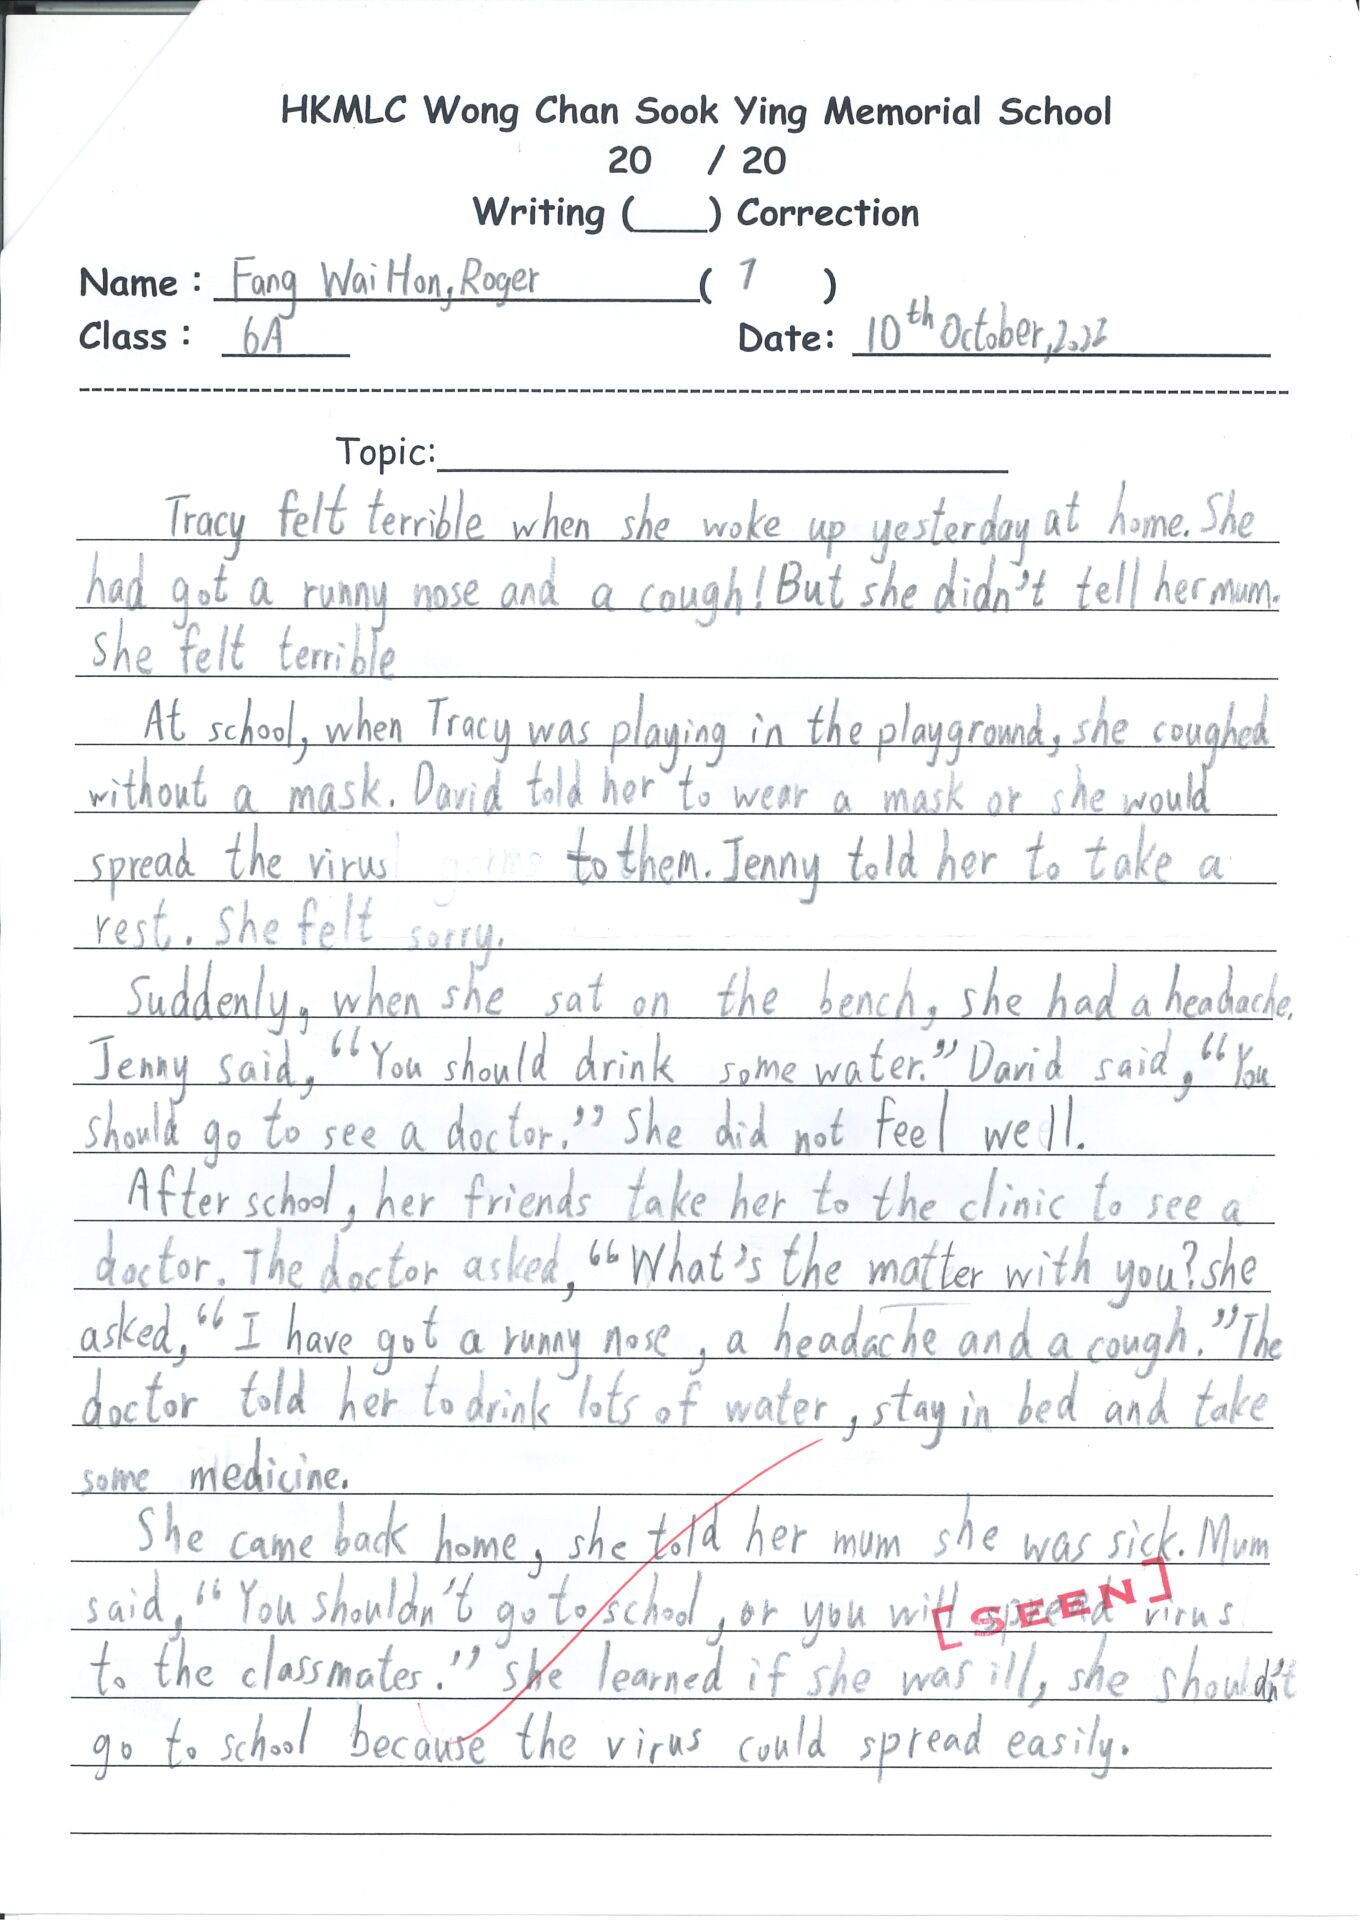 HKMLC Wong Chan Sook Ying Memorial School
20 / 20
Writing (___) Correction
Name : Fang Wai Hon, Roger ( 7 )
Class : 6A Date: 10th October, 2022
Topic:
Tracy felt terrible when she woke up yesterday at home. She
had got a runny nose and a cough! But she didn't tell her mum.
She felt terrible
At school, when Tracy was playing in the playground, she coughed
without a mask. David told her to wear a mask or she would
spread the virus to them. Jenny told her to take a
rest. She felt sorry.
Suddenly, when she sat on the bench, she had a headache.
Jenny said, “You should drink some water.” David said, “You
should go to see a doctor.” She did not feel well.
After school, her friends take her to the clinic to see a
doctor. The doctor asked, “What's the matter with you? she
asked, “I have got a runny nose, a headache and a cough.” The
doctor told her to drink lots of water, stay in bed and take
some medicine.
She came back home, she told her mum she was sick. Mum
said, “You shouldn't go to school, or you will spread virus
[SEEN]
to the classmates.” She learned if she was ill, she shouldn't
go to school because the virus could spread easily.